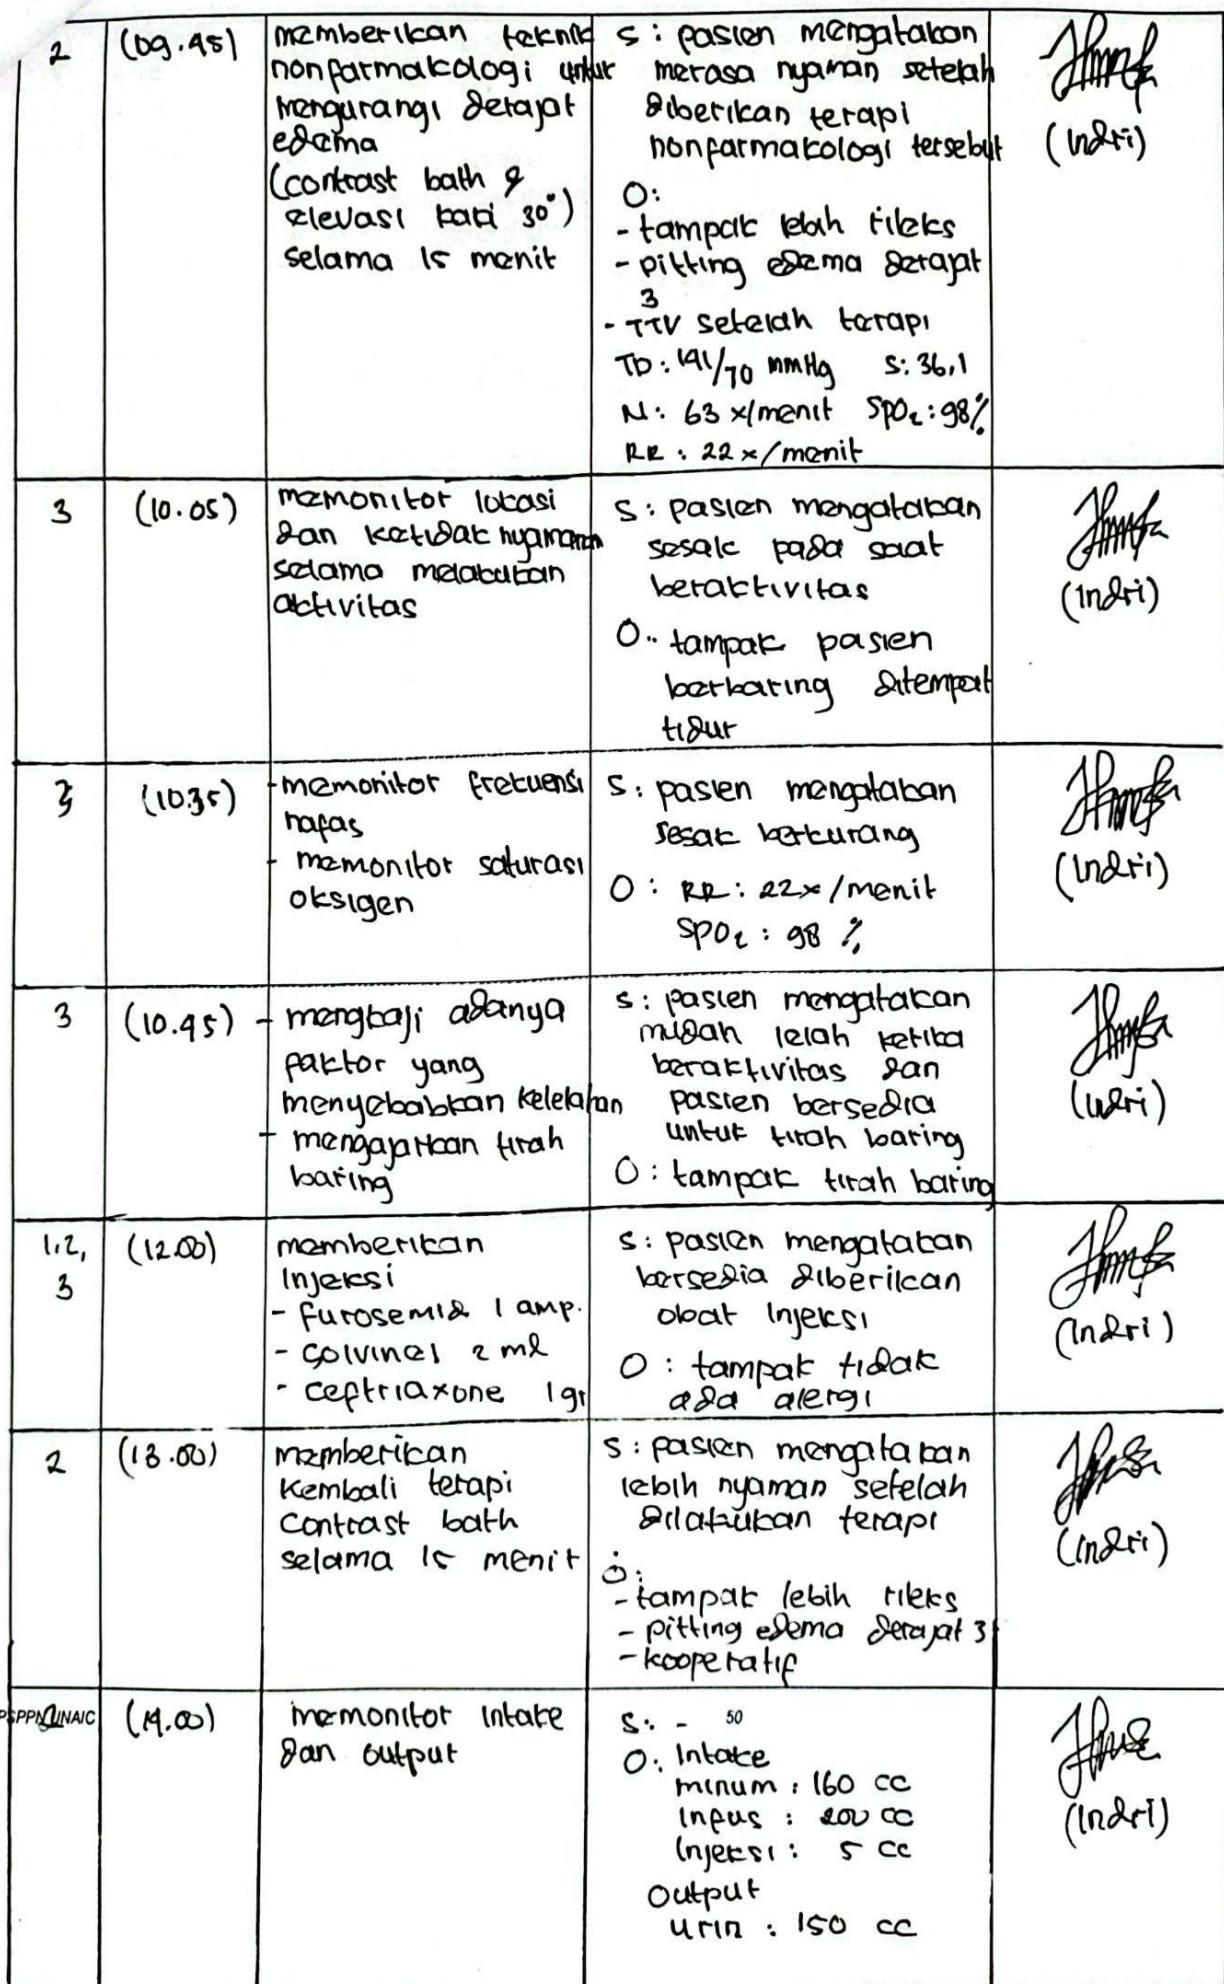 2
(09.45)
memberikan teknik
nonfarmakologi untuk
mengurangi derajat
edema
(contrast bath &
elevasi kaki 30°)
selama 15 menit
S : pasien mengatakan
merasa nyaman setelah
diberikan terapi
nonfarmakologi tersebut
O:
- tampak lebih rileks
- pitting edema derajat
3
- TTV setelah terapi
TD : 141/70 mmHg S: 36,1
N : 63 x/menit SpO2 : 98%
RR : 22 x/menit
(Indri)
3
(10.05)
memonitor lokasi
dan ketidaknyamanan
selama melakukan
aktivitas
S : pasien mengatakan
sesak pada saat
beraktivitas
O : tampak pasien
berbaring ditempat
tidur
(Indri)
3
(10.35)
- memonitor frekuensi
nafas
- memonitor saturasi
oksigen
S : pasien mengatakan
sesak berkurang
O : RR : 22x/menit
SPO2 : 98 %
(Indri)
3
(10.45)
- mengkaji adanya
faktor yang
menyebabkan kelelahan
- mengajarkan tirah
baring
S : pasien mengatakan
mudah lelah ketika
beraktivitas dan
pasien bersedia
untuk tirah baring
O : tampak tirah baring
(Indri)
1,2,
3
(12.00)
memberikan
Injeksi
- furosemid 1 amp.
- solvinex 2 ml
- ceftriaxone 1 gr
S : pasien mengatakan
bersedia diberikan
obat Injeksi
O : tampak tidak
ada alergi
(Indri)
2
(13.00)
memberikan
kembali terapi
contrast bath
selama 15 menit
S : pasien mengatakan
lebih nyaman setelah
dilakukan terapi
O :
- tampak lebih rileks
- pitting edema derajat 3
- kooperatif
(Indri)
(14.00)
memonitor Intake
dan output
S : -
50
O : Intake
minum : 160 cc
Infus : 200 cc
Injeksi : 5 cc
Output
urin : 150 cc
(Indri)